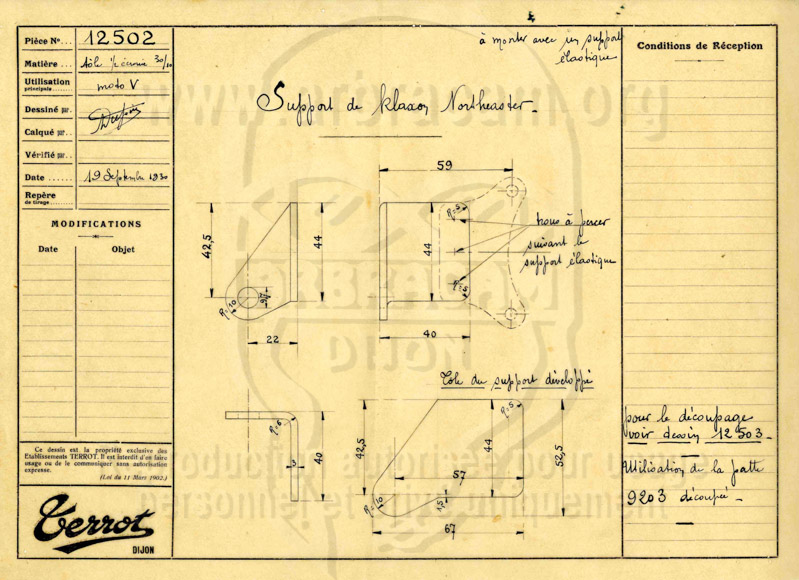 Pièce No... 12502
Matière... tôle 30/10
Utilisation
principale....... moto V
Dessiné par.
Calqué par..
Vérifié par..
Date ...... 19 Septembre 1930
Repère
de tirage........
MODIFICATIONS
Date Objet
Ce dessin est la propriété exclusive des
Etablissements TERROT. Il est interdit d'en faire
usage ou de le communiquer sans autorisation
expresse.
(Loi du 11 Mars 1902.)
Terrot
DIJON
à monter avec un support
élastique
Support de klaxon Northeaster.
59
42,5
44
44
R=5
R=5
trous à percer
suivant le
support élastique
R=10
22
40
Tôle du support développé
R=6
3
40
42,5
44
R=5
52,5
57
R=10
67
Conditions de Réception
pour le découpage
voir dessin 12503.
Utilisation de la patte
9203 découpée.
ABRACAM
DIJON